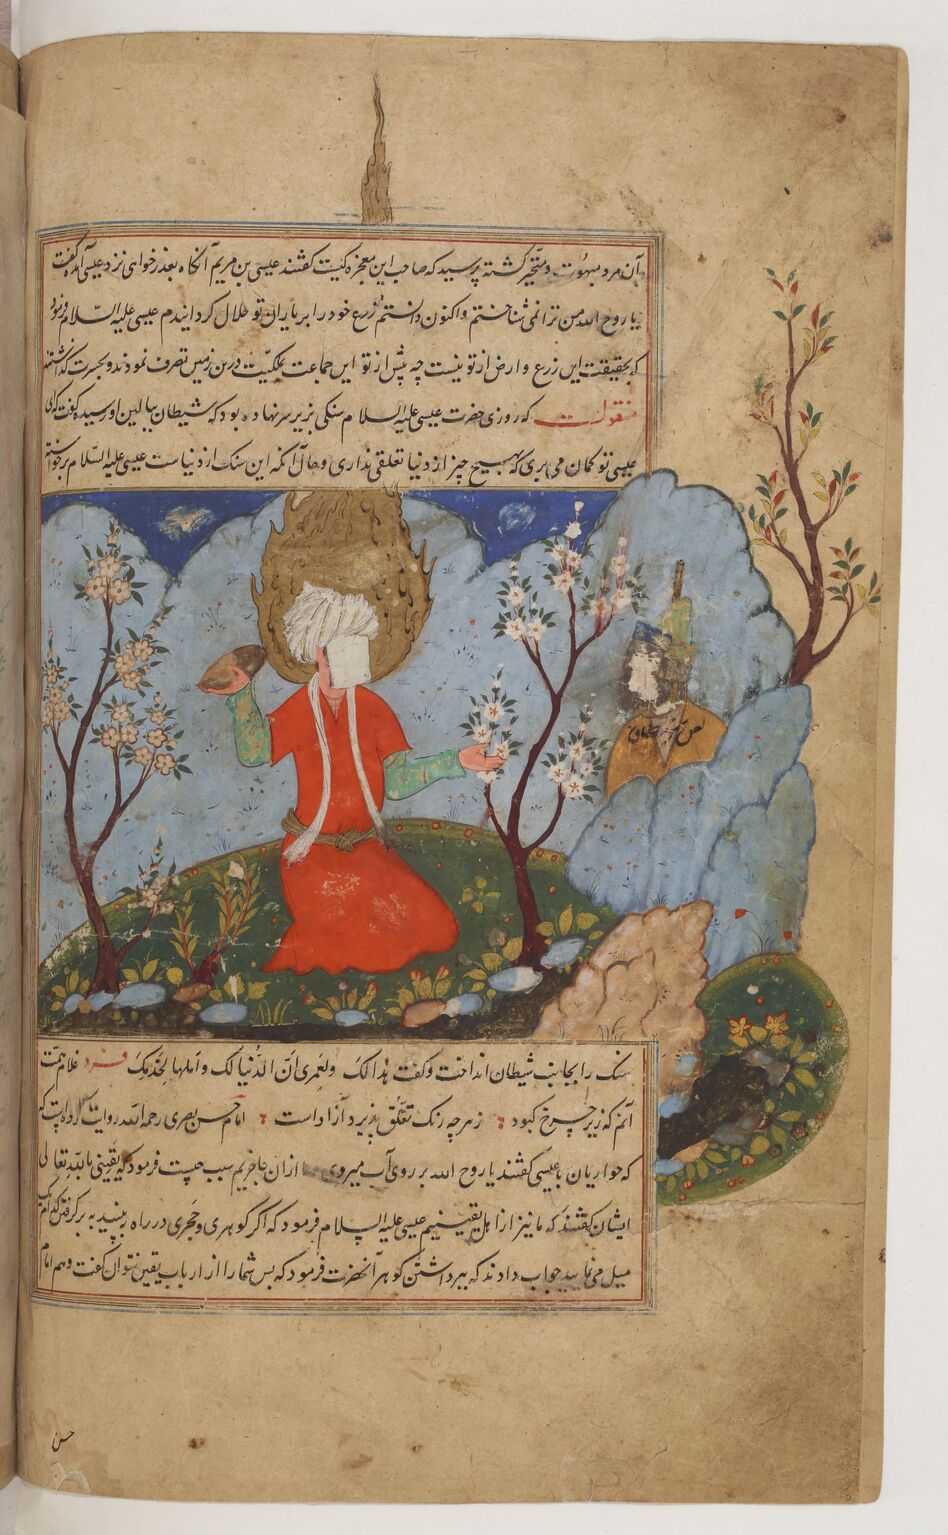 آن مرد مبهوت و متحیر کشته پرسید که صاحب این معجزه کیست کفتند عیسی بن مریم آنکاه بعذرخواهی نزد عیسی آمد کفت
یا روح الله من ترا نمی شناختم و اکنون دانستم زرع خود را بر یاران تو حلال کردانیدم عیسی علیه السلام فرمود
که بحقیقت این زرع و ارض از تو نیست چه پیش از تو این جماعت بملکیت درین زمین تصرف نمودند و بحسرت کذاشتند
منقولست که روزی حضرت عیسی علیه السلام سنکی بزیر سر نهاده بود که شیطان ببالین او رسیده کفت که ای
عیسی تو کمان می بری که بهیچ چیز از دنیا تعلقی نداری و حال آنکه این سنک از دنیاست عیسی علیه السلام برخاسته
سنک را بجانب شیطان انداخت و کفت هذا لک ولعمری ان الدنیا لک و اهلها لخدمک فرد غلام همت
آنم که زیر چرخ کبود ز هر چه رنک تعلق پذیرد آزاد است امام حسن بصری رحمه الله روایت کرده است که
که حواریان با عیسی کفتند یا روح الله بر روی آب میروی ازان عاجزیم سبب چیست فرمود که یقینی بالله تعالی
ایشان کفتند که ما نیز از اهل یقینیم عیسی علیه السلام فرمود که اکر کوهری و حجری در راه ببینید به برکرفتن کدام یک
میل می نمایید جواب دادند که ببرداشتن کوهر آنحضرت فرمود که پس شما را از ارباب یقین نتوان کفت و هم امام
حسن